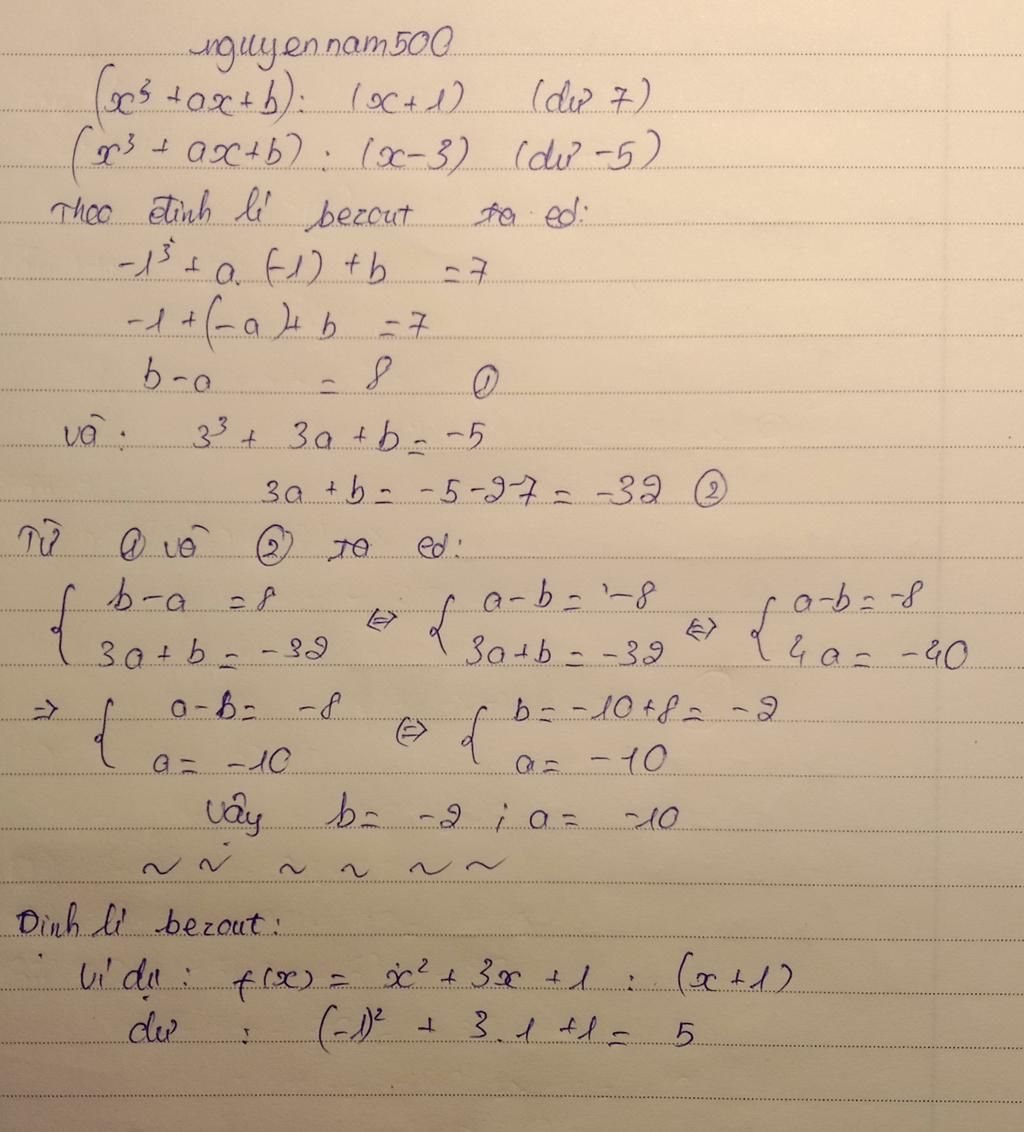 nguyennam500
(x³ + ax + b) : (x + 1) (dư 7)
(x³ + ax + b) : (x - 3) (dư -5)
Theo định lí bezout ta có:
-1³ + a. (-1) + b = 7
-1 + (-a) + b = 7
b - a = 8 ①
và : 3³ + 3a + b = -5
3a + b = -5 -27 = -32 ②
Từ ① và ② ta có:
{ b - a = 8 ⇔ { a - b = -8 ⇔ { a - b = -8
3a + b = -32 3a + b = -32 4a = -40
⇒ { a - b = -8 ⇔ { b = -10 + 8 = -2
a = -10 a = -10
Vậy b = -2 ; a = -10
~ ~ ~ ~ ~ ~
Định lí bezout :
Ví dụ : f(x) = x² + 3x + 1 : (x + 1)
dư : (-1)² + 3.1 + 1 = 5